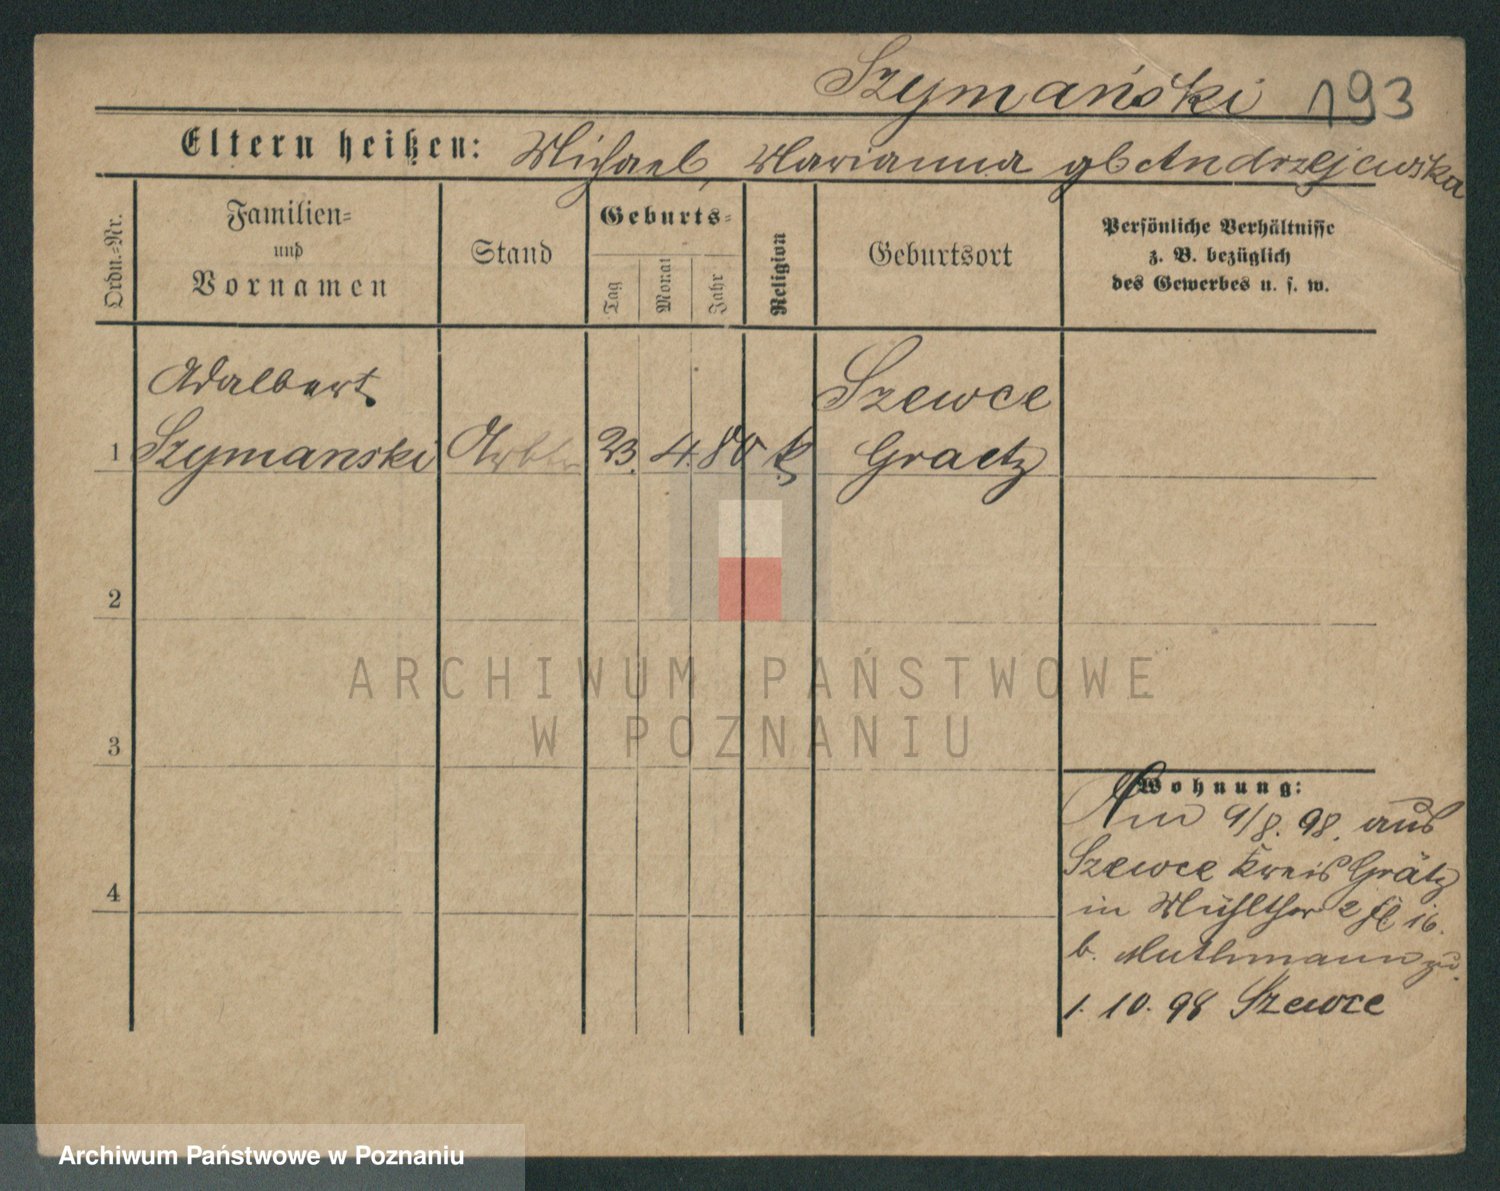 Szymański 193
Eltern heißen: Michael, Marianna gb Andrzejewska
Ordn.=Nr.
Familien=
und
Vornamen
Stand
Geburts=
Tag
Monat
Jahr
Religion
Geburtsort
Persönliche Verhältnisse
z. B. bezüglich
des Gewerbes u. s. w.
Adalbert
Szewce
1 Szymanski 23. 4. 80 k Graetz
2
3
4
ARCHIWUM PAŃSTWOWE
W POZNANIU
Wohnung:
9/8. 98. aus
Szewce Kreis Grätz
in Mühlthor 2
b. Muthmann zu.
1. 10. 98 Szewce
Archiwum Państwowe w Poznaniu